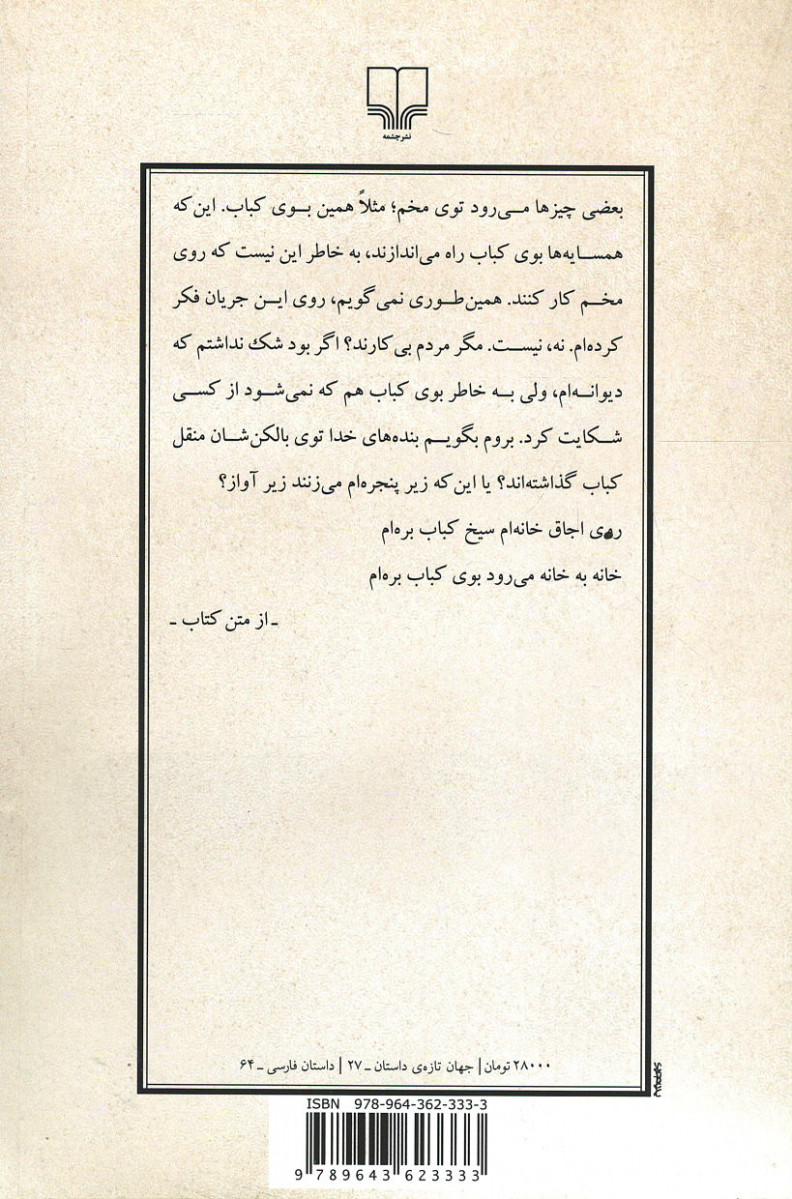 نشرچشمه
بعضی چیزها می‌رود توی مخم؛ مثلاً همین بوی کباب. این‌که
همسایه‌ها بوی کباب راه می‌اندازند، به خاطر این نیست که روی
مخم کار کنند. همین‌طوری نمی‌گویم، روی این جریان فکر
کرده‌ام. نه، نیست. مگر مردم بی‌کارند؟ اگر بود شك نداشتم که
دیوانه‌ام، ولی به خاطر بوی کباب هم که نمی‌شود از کسی
شکایت کرد. بروم بگویم بنده‌های خدا توی بالکن‌شان منقل
کباب گذاشته‌اند؟ یا این‌که زیر پنجره‌ام می‌زنند زیر آواز؟
روی اجاق خانه‌ام سیخ کباب بره‌ام
خانه به خانه می‌رود بوی کباب بره‌ام
ـ از متن کتاب ـ
۲۸۰۰۰ تومان | جهان تازه‌ی داستان ـ ۲۷ | داستان فارسی ـ ۶۴
ISBN 978-964-362-333-3
9 789643 623333